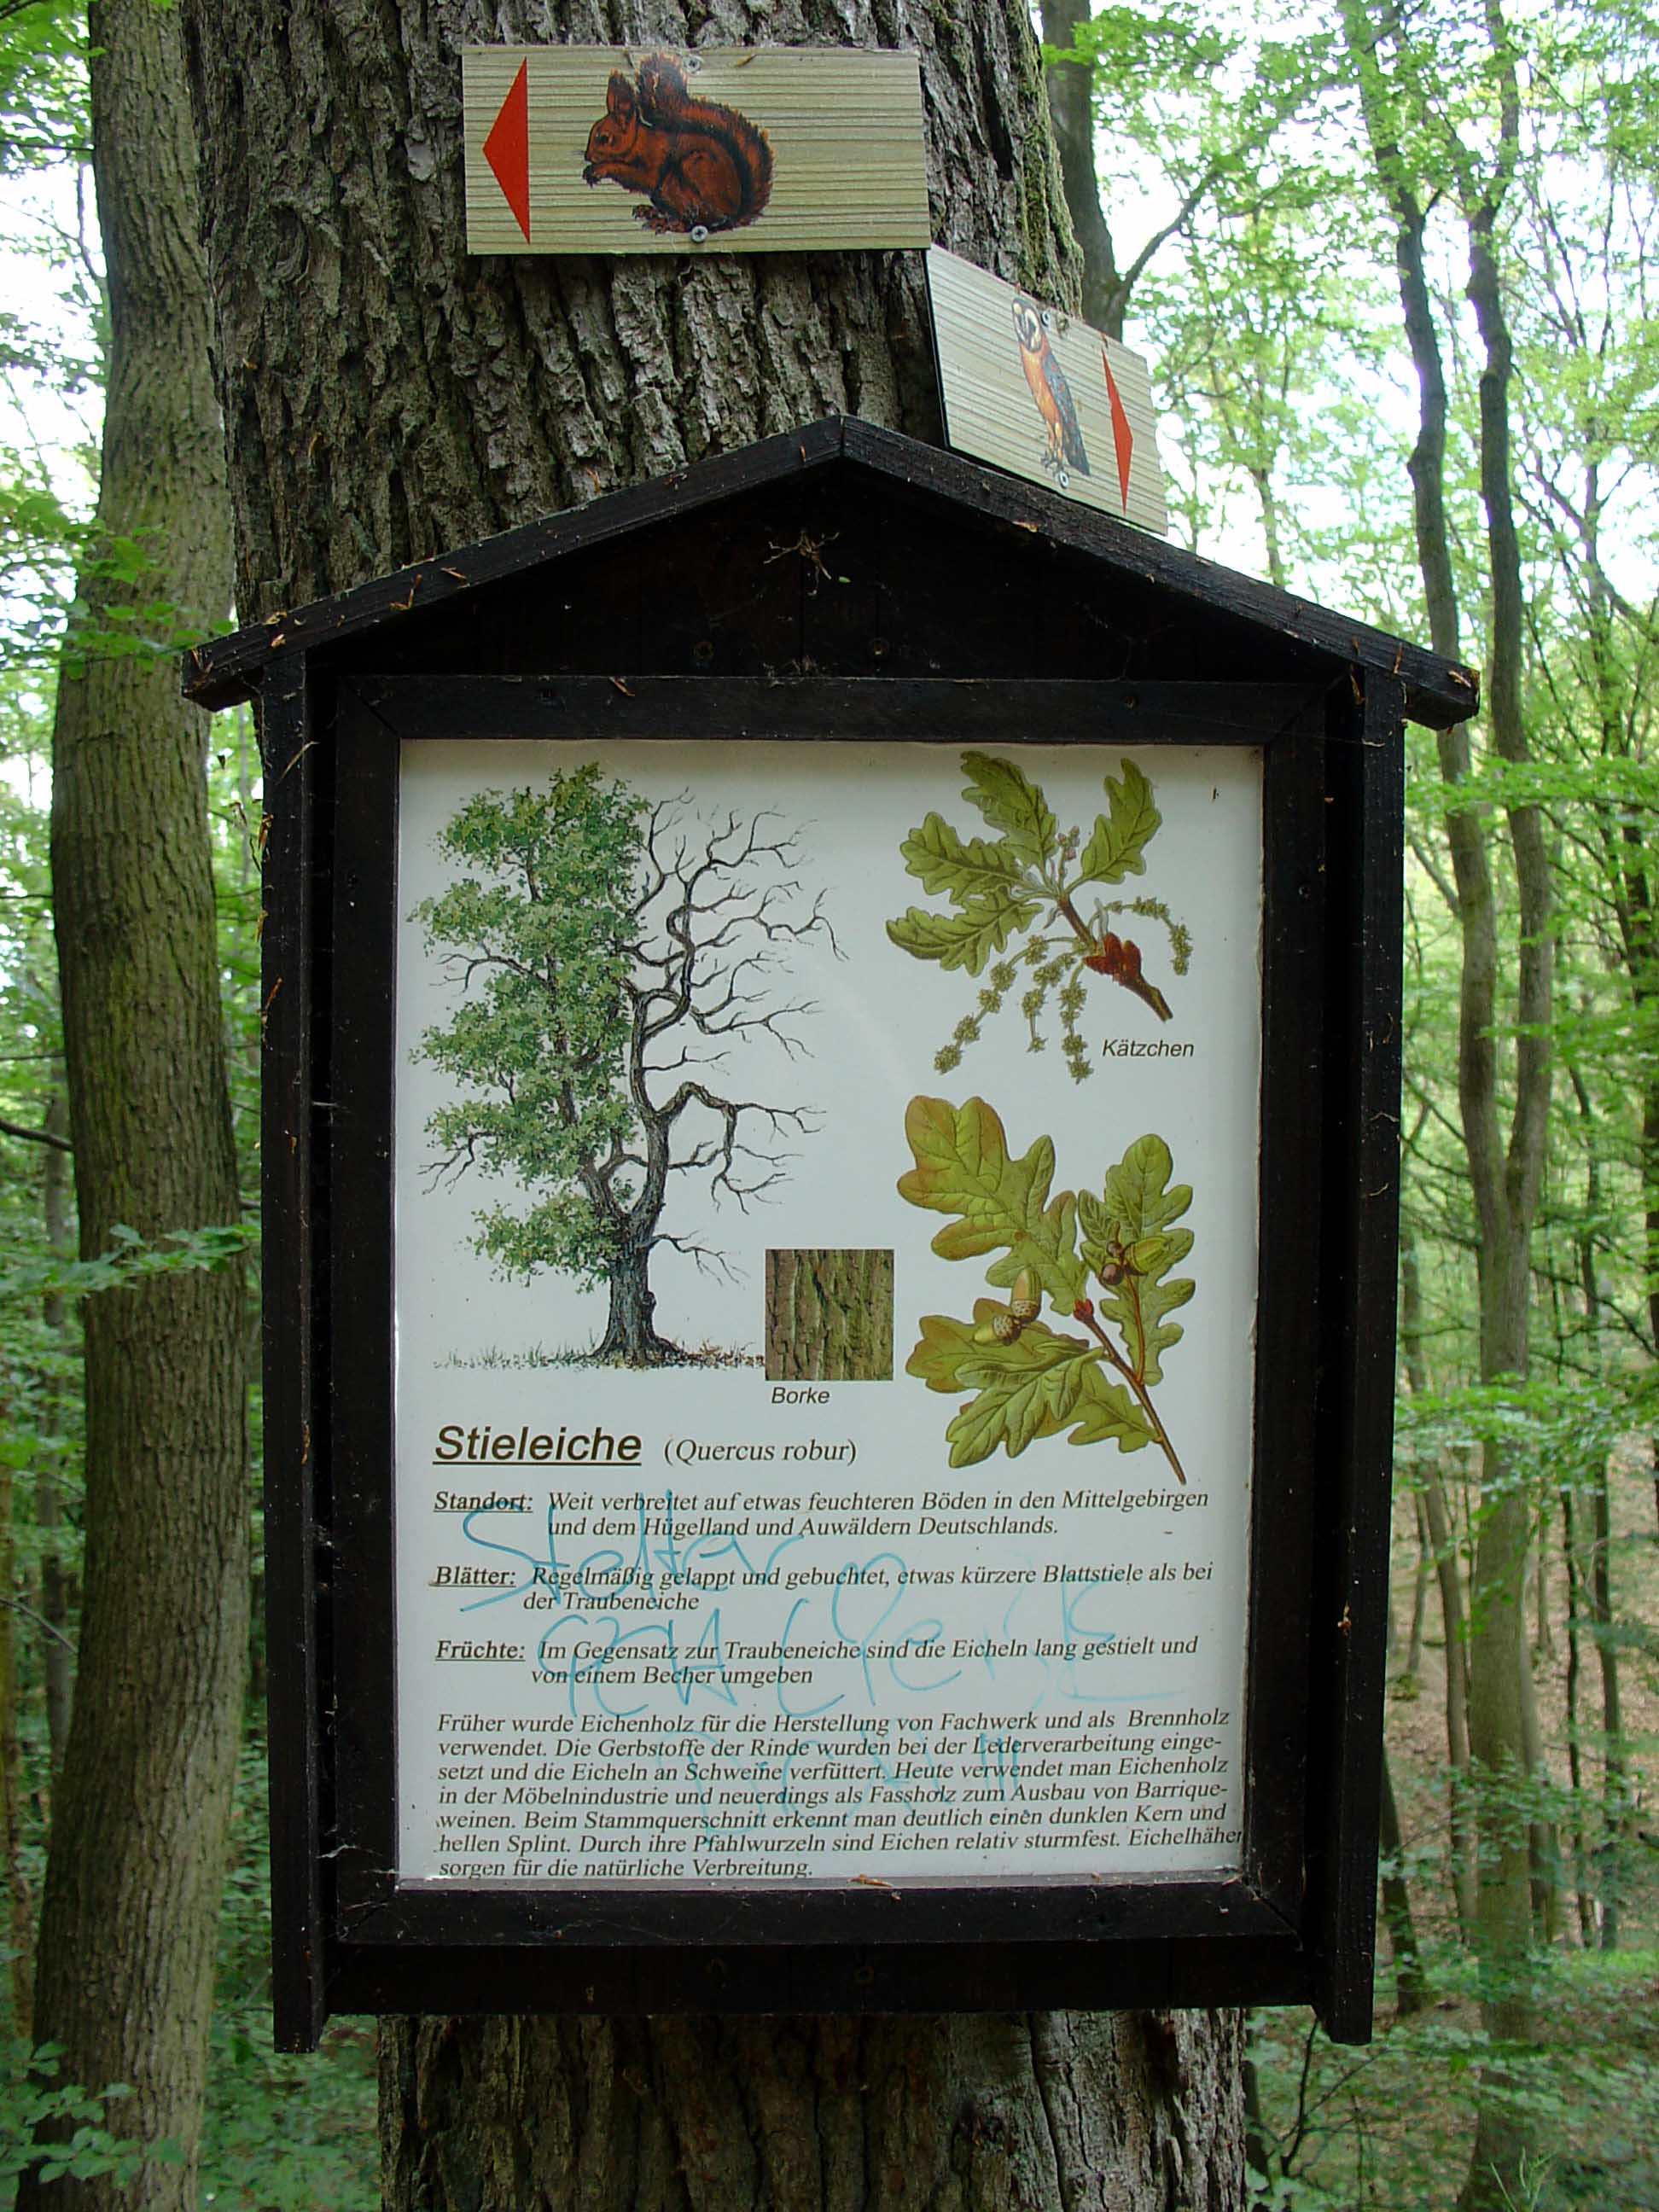 Kätzchen
Borke
Stieleiche (Quercus robur)
Standort: Weit verbreitet auf etwas feuchteren Böden in den Mittelgebirgen
und dem Hügelland und Auwäldern Deutschlands.
Blätter: Regelmäßig gelappt und gebuchtet, etwas kürzere Blattstiele als bei
der Traubeneiche
Früchte: Im Gegensatz zur Traubeneiche sind die Eicheln lang gestielt und
von einem Becher umgeben
Früher wurde Eichenholz für die Herstellung von Fachwerk und als Brennholz
verwendet. Die Gerbstoffe der Rinde wurden bei der Lederverarbeitung einge-
setzt und die Eicheln an Schweine verfüttert. Heute verwendet man Eichenholz
in der Möbelnindustrie und neuerdings als Fassholz zum Ausbau von Barrique-
weinen. Beim Stammquerschnitt erkennt man deutlich einen dunklen Kern und
hellen Splint. Durch ihre Pfahlwurzeln sind Eichen relativ sturmfest. Eichelhäher
sorgen für die natürliche Verbreitung.